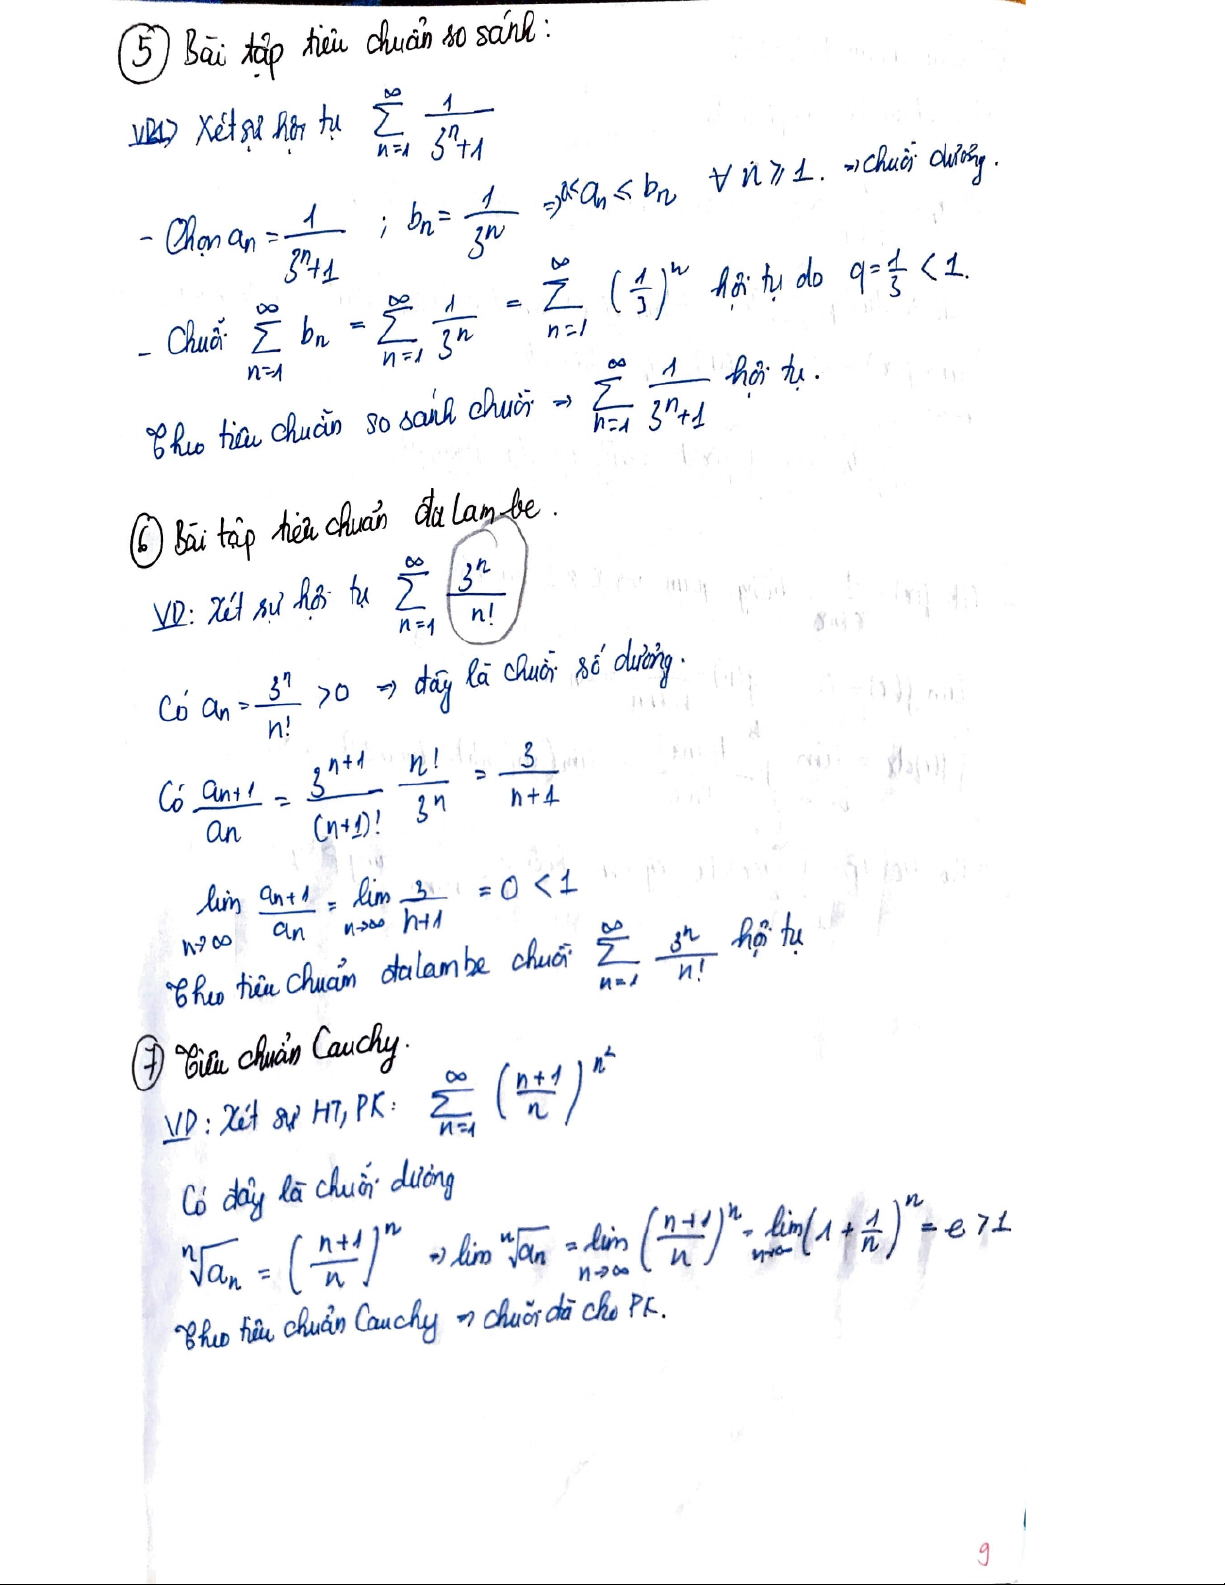 ⑤ Bài tập tiêu chuẩn so sánh:
VD1) Xét sự hội tụ ∑_{n=1}^{∞} 1/(3^n+1)
- Chọn a_n = 1/(3^n+1) ; b_n = 1/3^n ⇒ 0< a_n ≤ b_n ∀ n ≥ 1. ⇒ chuỗi dương.
- Chuỗi ∑_{n=1}^{∞} b_n = ∑_{n=1}^{∞} 1/3^n = ∑_{n=1}^{∞} (1/3)^n hội tụ do q = 1/3 < 1.
Theo tiêu chuẩn so sánh chuỗi ⇒ ∑_{n=1}^{∞} 1/(3^n+1) hội tụ.
⑥ Bài tập tiêu chuẩn đalambe.
VD: Xét sự hội tụ ∑_{n=1}^{∞} 3^n/n!
Có a_n = 3^n/n! > 0 ⇒ đây là chuỗi số dương.
Có a_{n+1}/a_n = 3^{n+1}/(n+1)! n!/3^n = 3/(n+1)
lim_{n→∞} a_{n+1}/a_n = lim_{n→∞} 3/(n+1) = 0 < 1
Theo tiêu chuẩn đalambe chuỗi ∑_{n=1}^{∞} 3^n/n! hội tụ
⑦ Tiêu chuẩn Cauchy.
VD: Xét sự HT, PK: ∑_{n=1}^{∞} ((n+1)/n)^{n^2}
Có đây là chuỗi dương
ⁿ√a_n = ((n+1)/n)^n ⇒ lim ⁿ√a_n = lim_{n→∞} ((n+1)/n)^n = lim_{n→∞} (1 + 1/n)^n = e > 1
Theo tiêu chuẩn Cauchy ⇒ chuỗi đã cho PK.
9